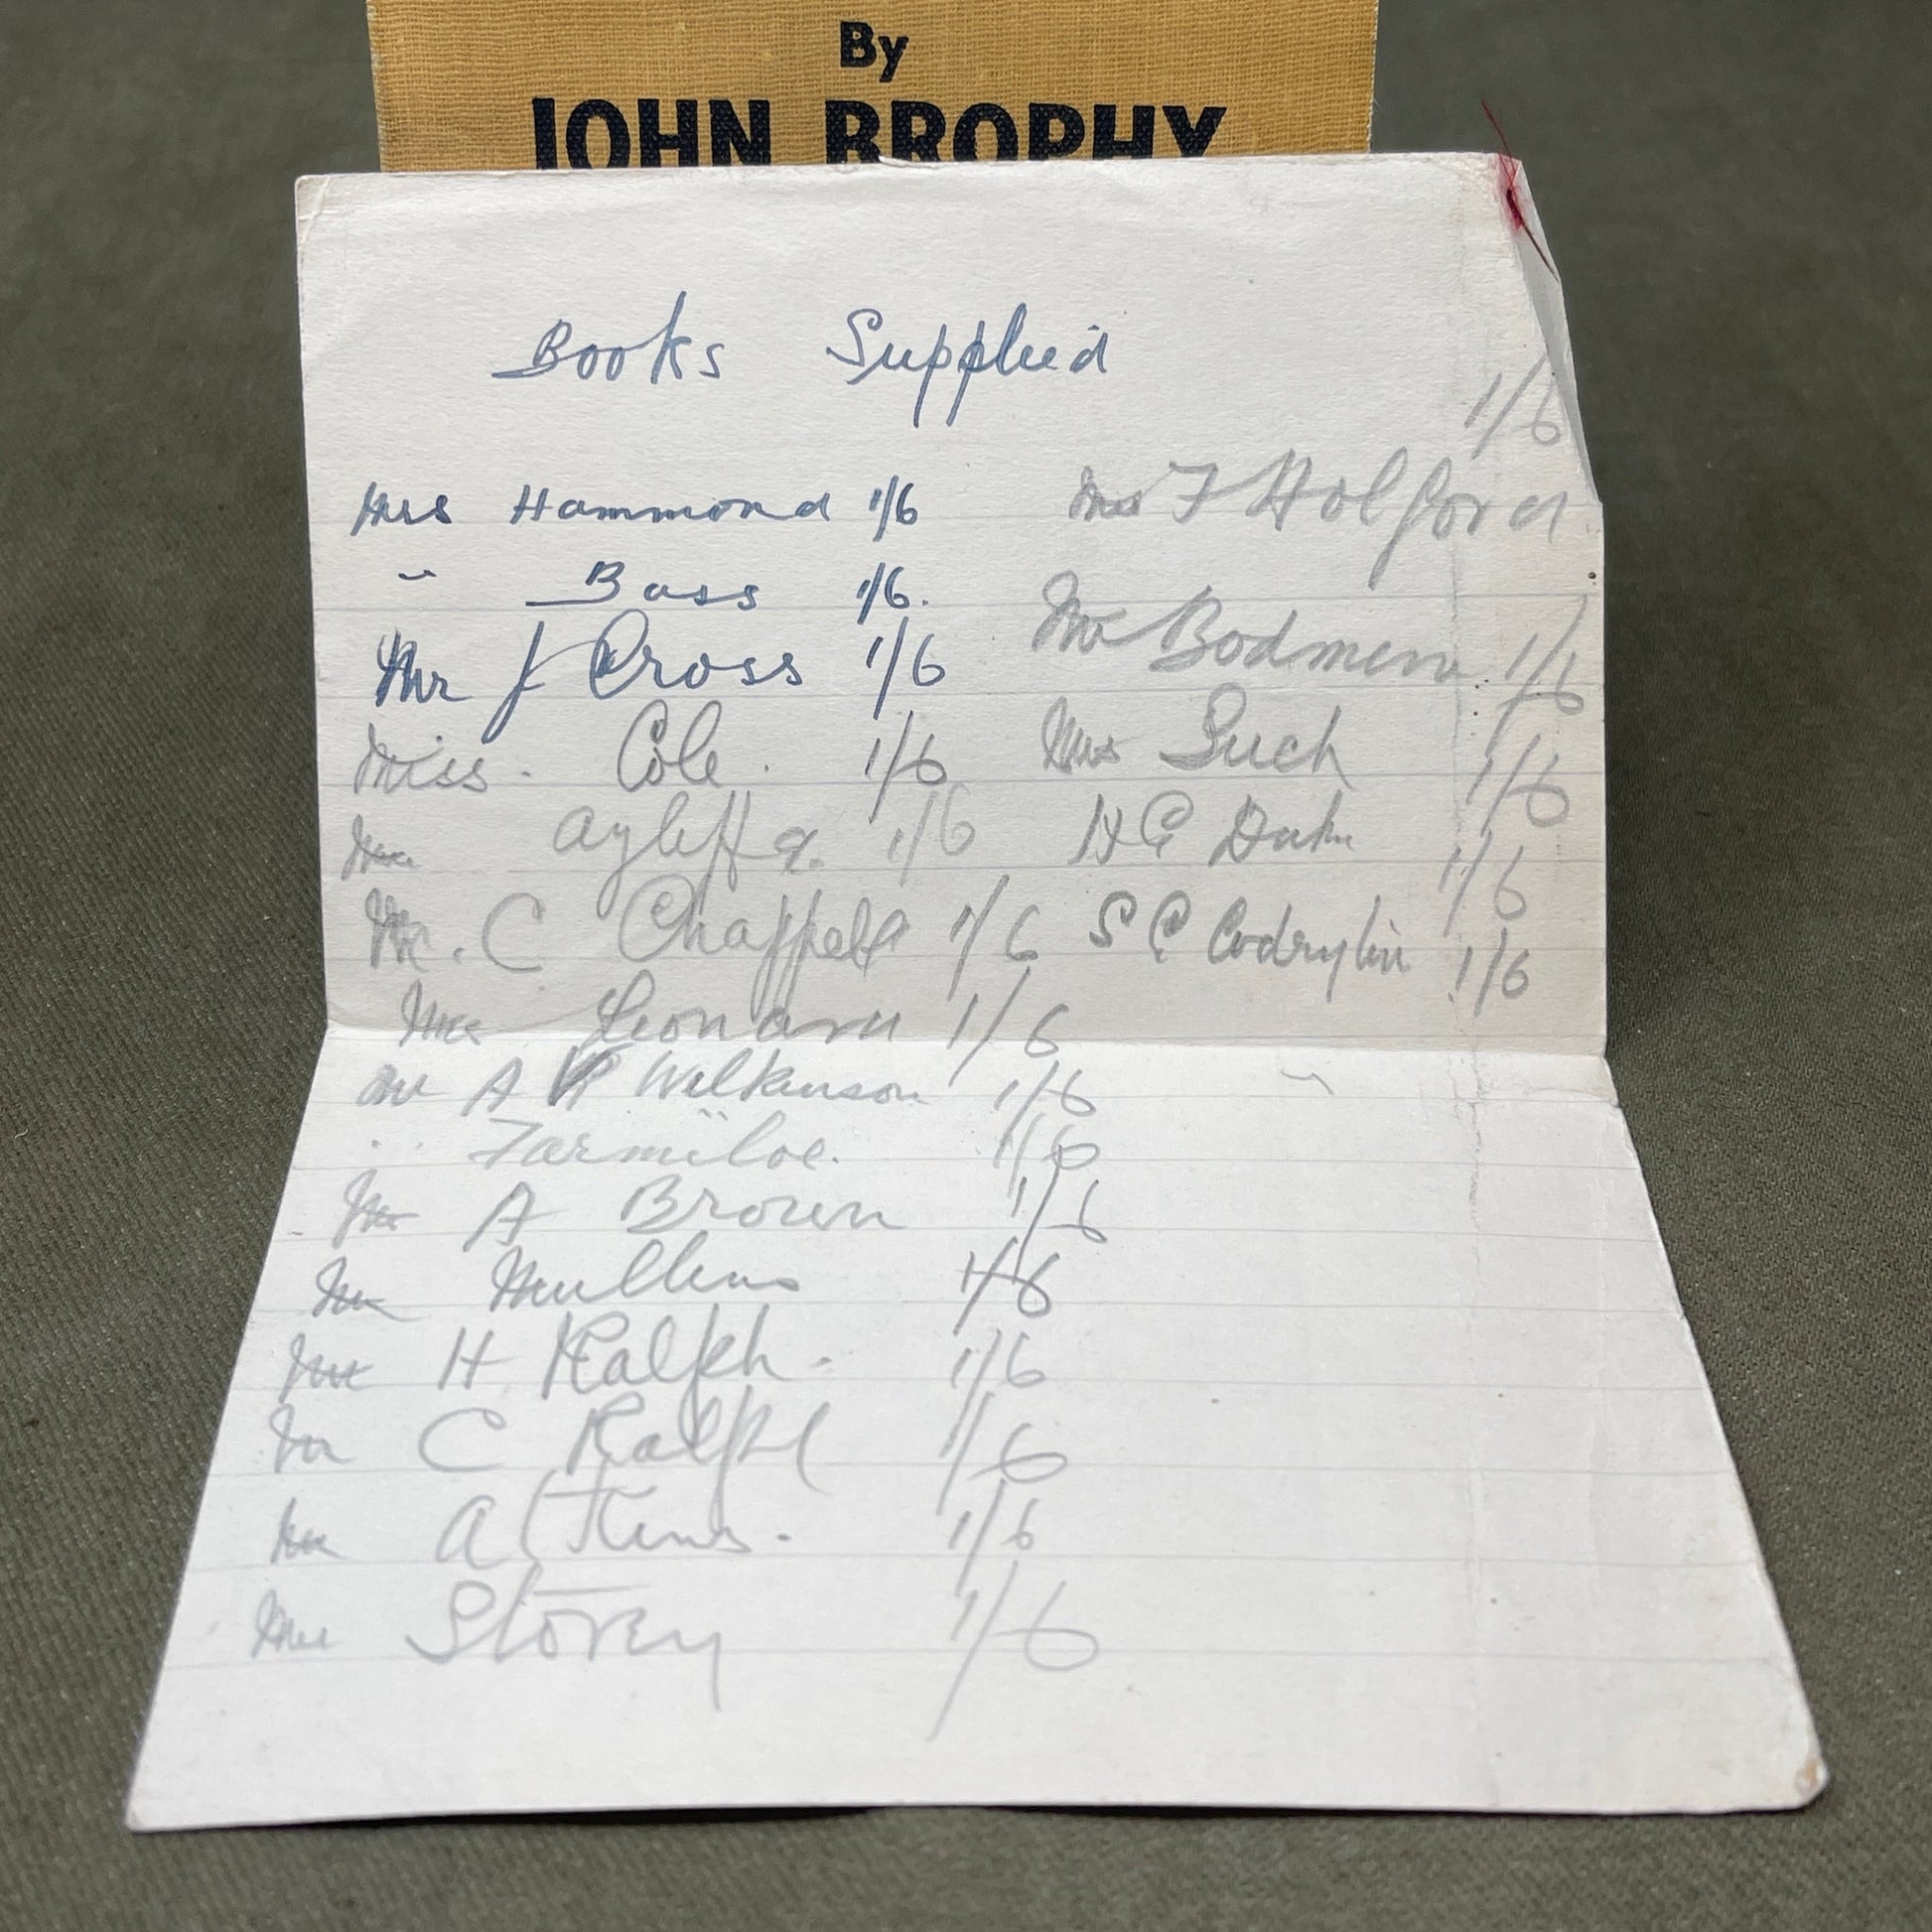 By
JOHN BROPHY
Books Supplied
Mrs Hammond 1/6
" Bass 1/6.
Mr J Cross 1/6
Miss. Cole. 1/6
Ayliffe. 1/6
Mr. C Chappell 1/6
Mrs Leonard 1/6
Mr A Wilkinson 1/6
" Farmiloe. 1/6
Mr A Brown 1/6
Mr Mullins 1/6
Mr H Ralph. 1/6
Mr C Ralph 1/6
Mr Atkins. 1/6
Mrs Storey 1/6
1/6
F Holford
Mr Bodmen 1/6
Mrs Such 1/6
H G 1/6
S C 1/6